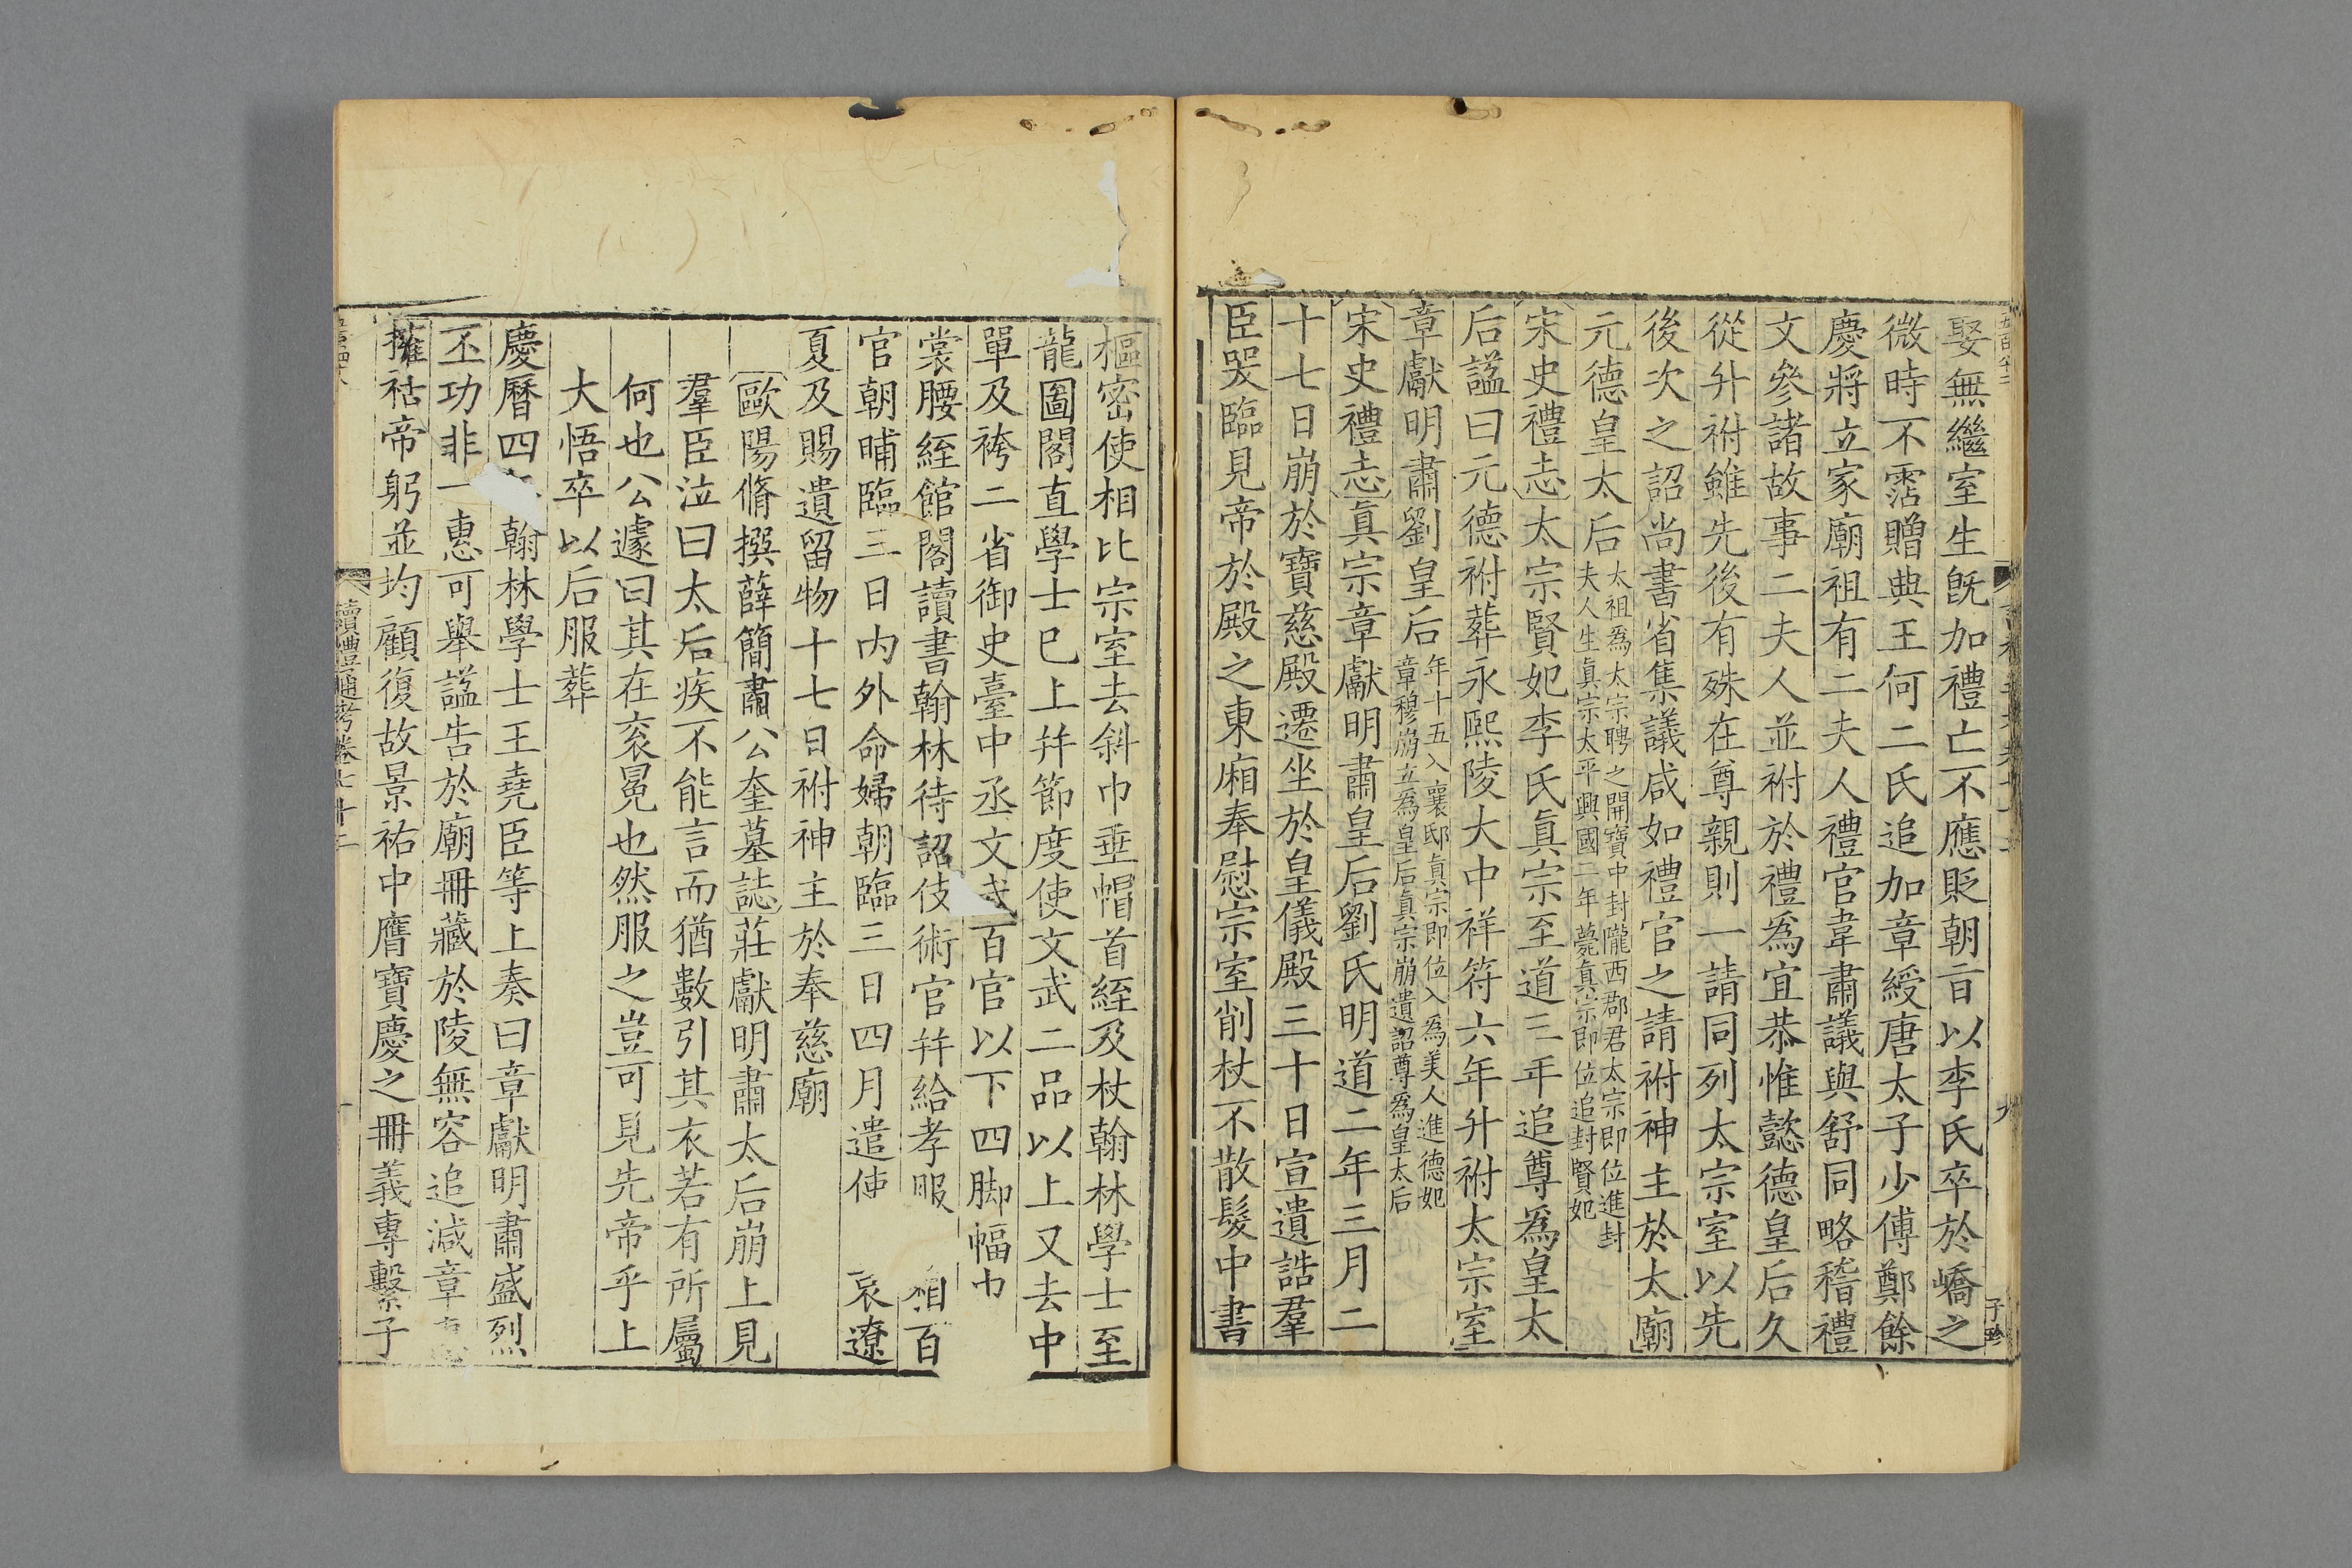 娶無繼室生旣加禮亡不應貶朝㫖以李氏卒於嶠之
微時不霑贈典王何二氏追加章綬唐太子少傅鄭餘
慶將立家廟祖有二夫人禮官韋肅議與舒同略稽禮
文參諸故事二夫人並祔於禮爲宜恭惟懿德皇后久
從升祔雖先後有殊在尊親則一請同列太宗室以先
後次之詔尚書省集議咸如禮官之請祔神主於太廟
元德皇太后太祖爲太宗聘之開寶中封隴西郡君太宗即位進封
夫人生眞宗太平興國二年薨眞宗即位追封賢妃
宋史禮志太宗賢妃李氏眞宗至道三年追尊爲皇太
后諡曰元德祔葬永熙陵大中祥符六年升祔太宗室
章獻明肅劉皇后年十五入襄邸眞宗即位入爲美人進德妃
章穆崩立爲皇后眞宗崩遺詔尊爲皇太后
宋史禮志眞宗章獻明肅皇后劉氏明道二年三月二
十七日崩於寶慈殿遷坐於皇儀殿三十日宣遺誥羣
臣哭臨見帝於殿之東廂奉慰宗室削杖不散髮中書
子珍
樞密使相比宗室去斜巾垂帽首絰及杖翰林學士至
龍圖閣直學士已上幷節度使文武二品以上又去中
單及袴二省御史臺中丞文武百官以下四脚幅巾
裳腰絰館閣讀書翰林待詔伎術官幷給孝服 相百
官朝晡臨三日内外命婦朝臨三日四月遣使 哀遼
夏及賜遺留物十七日祔神主於奉慈廟
歐陽脩撰薛簡肅公奎墓誌莊獻明肅太后崩上見
羣臣泣曰太后疾不能言而猶數引其衣若有所屬
何也公遽曰其在衮冕也然服之豈可見先帝乎上
大悟卒以后服葬
慶曆四 翰林學士王堯臣等上奏曰章獻明肅盛烈
丕功非一惠可舉諡告於廟冊藏於陵無容追減章
擁祜帝躬並均顧復故景祐中膺寶慶之冊義專繫子
讀禮通考卷七十二